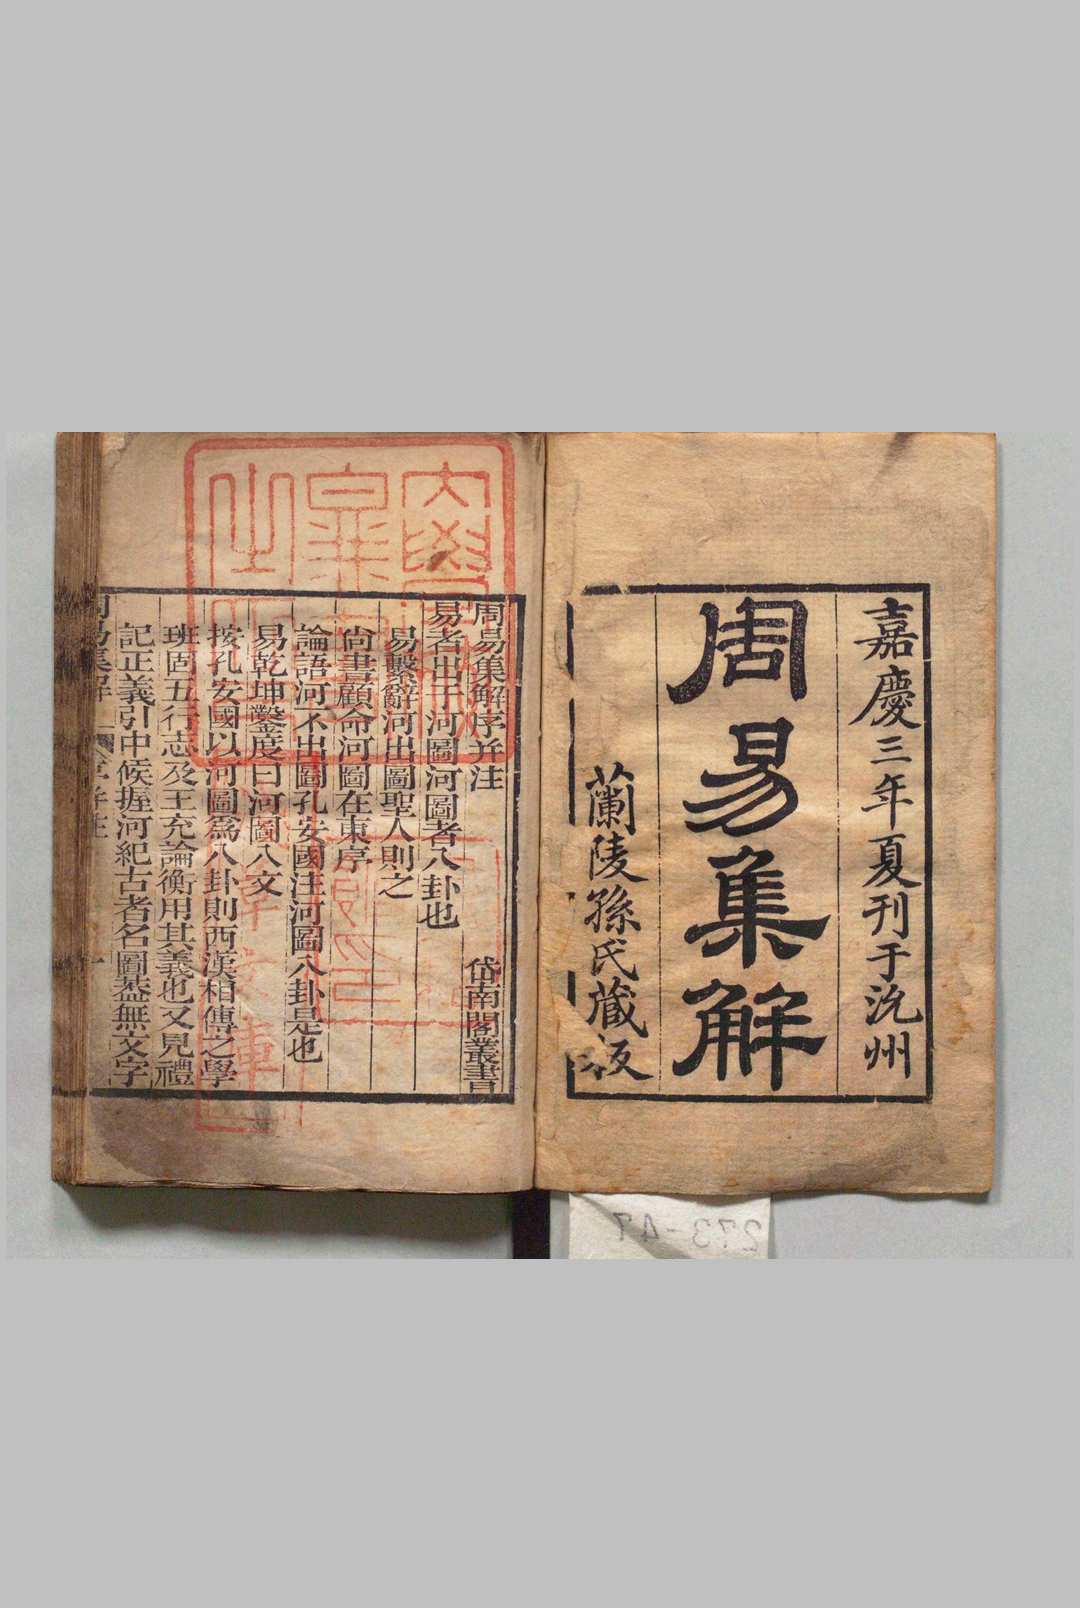 嘉慶三年夏刊于沇州
周易集解
蘭陵孫氏藏板
周易集解序并注 岱南閣叢書
易者出于河圖河圖者八卦也
易繫辭河出圖聖人則之
尚書顧命河圖在東序
論語河不出圖孔安國注河圖八卦是也
易乾坤鑿度曰河圖八文
按孔安國以河圖爲八卦則西漢相傳之學
班固五行志及王充論衡用其義也又見禮
記正義引中候握河紀古者名圖葢無文字
周易集解
273-47